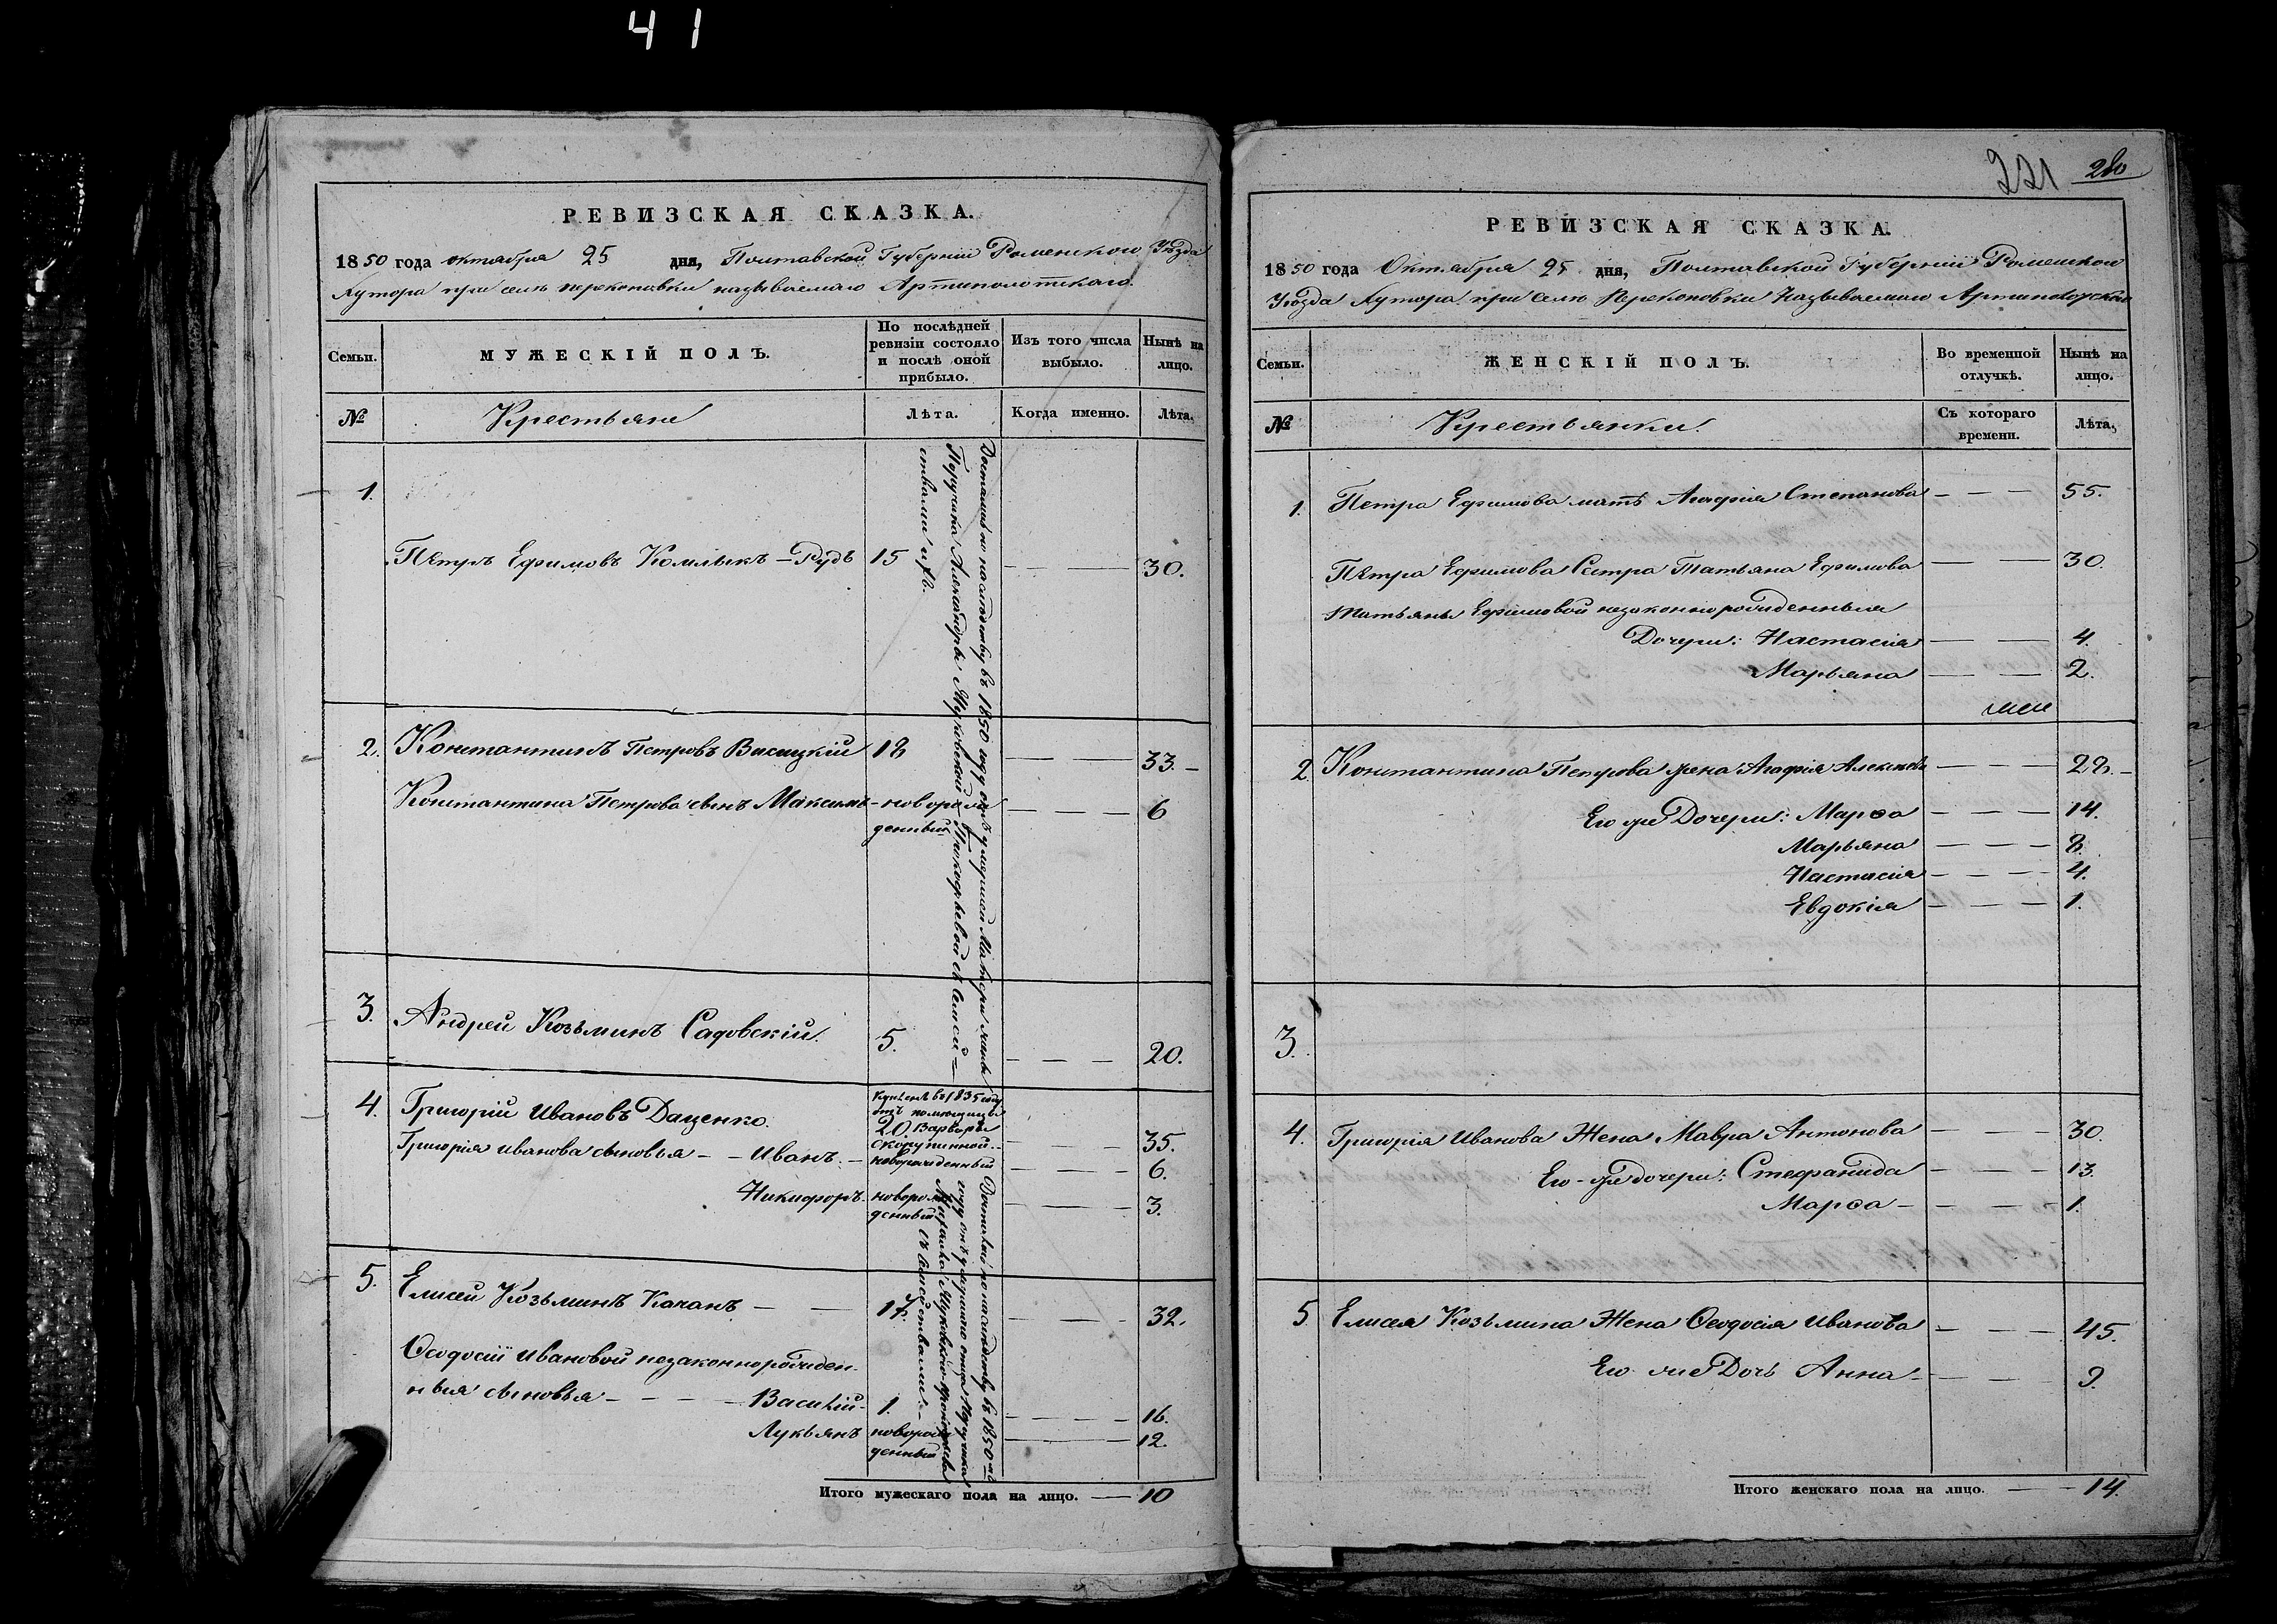 41
РЕВИЗСКАЯ СКАЗКА.
1850 года октября 25 дня, Полтавской Губернии Роменского Уѣзда
Хутора при селѣ перекоповки называемаго Артополотского.
Семьи.
МУЖЕСКІЙ ПОЛЪ.
По послѣдней ревизіи состояло и послѣ оной прибыло.
Изъ того числа выбыло.
Нынѣ на лицо.
№
Крестьяне
Лѣта.
Когда именно.
Лѣта.
1.
Петръ Ефимовъ Комлыкъ – Рудь 15 — — 30.
Доставшіе по наслѣдству въ 1850 году отъ умершей Матери
Поручика Александры Прокофьевой
2. Константинъ Петровъ Висицкій 18 — — 33.
Константина Петрова сынъ Максимъ – новорож — — 6
денный
3. Андрей Козьминъ Садовскій. 5. — — — 20.
4. Григорій Ивановъ Даценко. 20 35.
Купленъ въ 1835 году
отъ помещицы
Варвары
Григорія иванова сыновья – – Иванъ. – новорожденный — — — 6.
Никифоръ новорож — — — 3.
денный
Доставшіе по наслѣдству въ 1850 м
году отъ умершаго отца Поручика
5. Елисей Козьминъ Качанъ — — 17. — — — 32.
Ѳеодосіи Ивановой незаконнорожден-
ныя сыновья – – – – Василій 1. — — — 16.
Лукьянъ новорож — — 12.
денный
Итого мужескаго пола на лицо. — 10
221 280
РЕВИЗСКАЯ СКАЗКА.
1850 года Октября 25 дня, Полтавской Губерніи Роменского
Уѣзда Хутора при Селѣ Перекоповки Называемаго
Семьи.
ЖЕНСКІЙ ПОЛЪ.
Во временной отлучкѣ.
Нынѣ на лицо.
№
Крестьянки.
Съ котораго времени.
Лѣта.
1. Петра Ефимова мать Агафія Степанова – – – 55.
Петра Ефимова Сестра Татьяна Ефимова — — 30.
Татьяны Ефимовой незаконнорожденныя
Дочери: Настасія — — 4.
Марьяна — — 2.
2 Константина Петрова жена Агафія Алексѣева – – – 28.
Его же Дочери: Марѳа – – – 14.
Марьяна – – – 8.
Настасія – – – 4.
Евдокія – – – 1.
3.
4. Григорія Иванова Жена Мавра Антонова – – – 30.
Его-же дочери: Стефанида – – – 13.
Марѳа – – – 1.
5. Елисея Козьмина Жена Ѳеодосія Иванова – – – 45.
Его же Дочь Анна – – – 9.
Итого женскаго пола на лицо. — – 14.